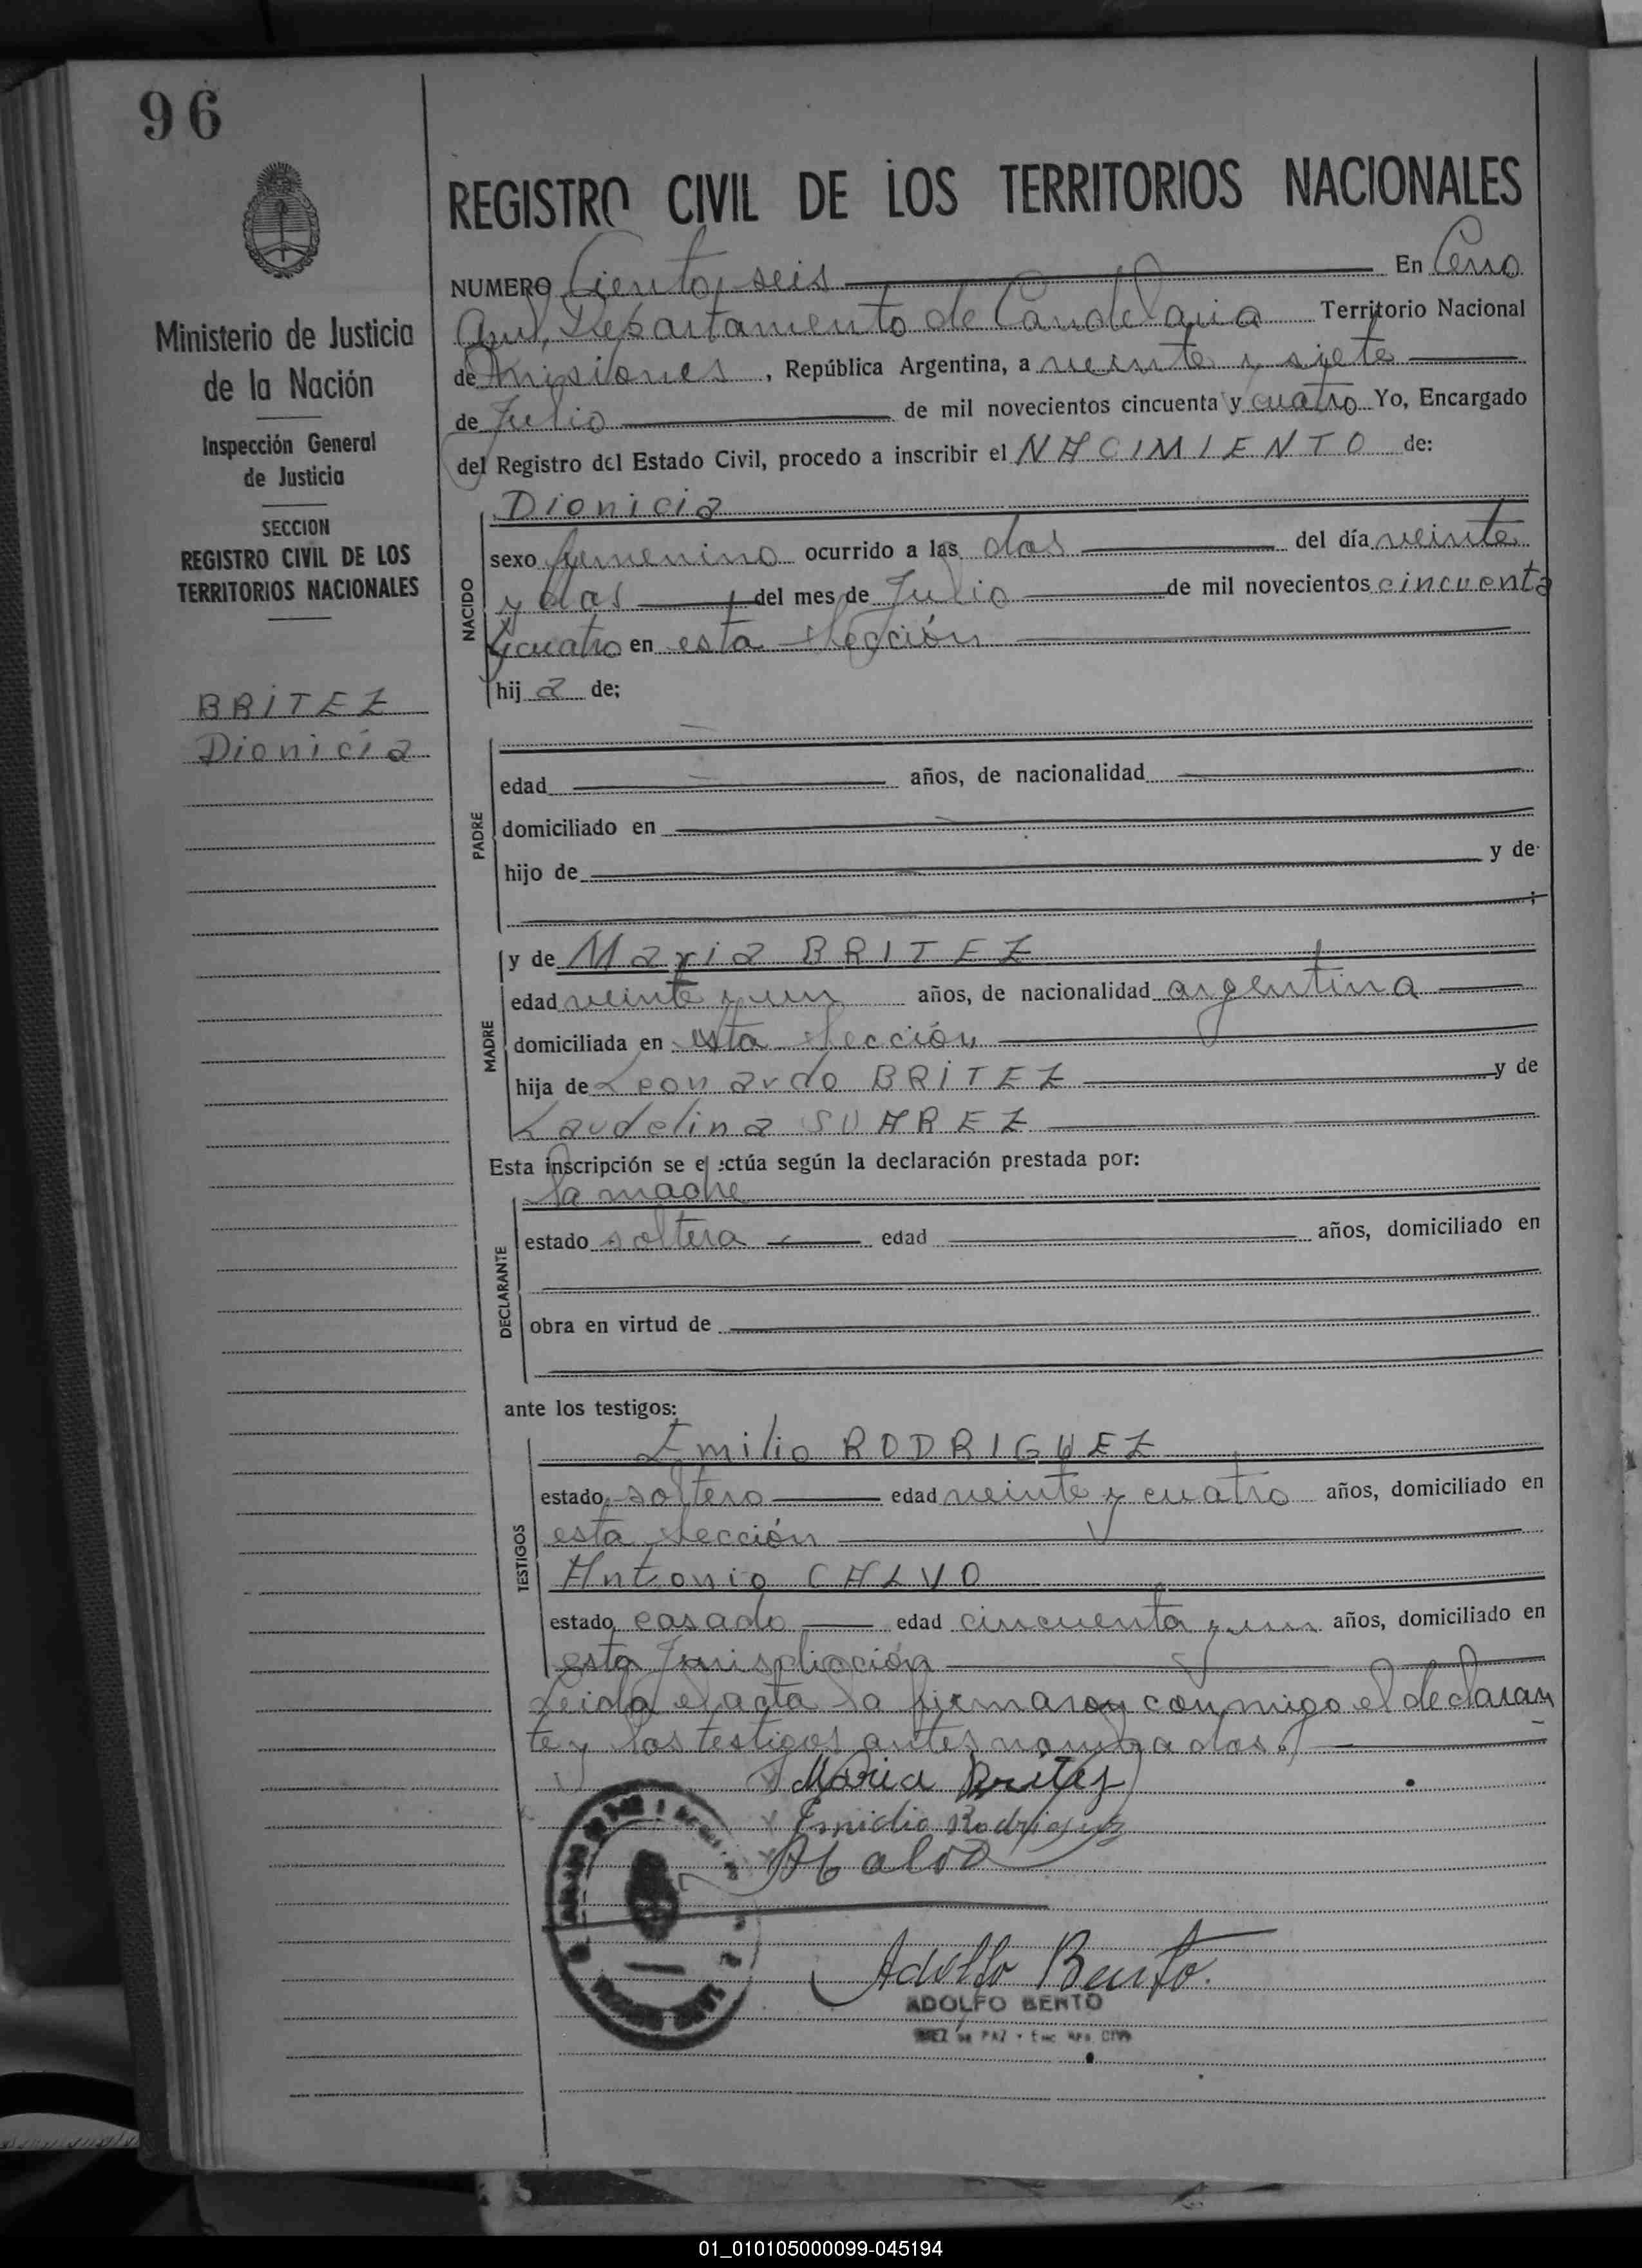 96
REGISTRO CIVIL DE LOS TERRITORIOS NACIONALES
Ministerio de Justicia
de la Nación
Inspección General
de Justicia
SECCION
REGISTRO CIVIL DE LOS
TERRITORIOS NACIONALES
BRITEZ
Dionicia
NUMERO Ciento seis En Cerro
Azul, Departamento de Candelaria Territorio Nacional
de Misiones, República Argentina, a veinte y siete
de Julio de mil novecientos cincuenta y cuatro Yo, Encargado
del Registro del Estado Civil, procedo a inscribir el NACIMIENTO de:
NACIDO
Dionicia
sexo femenino ocurrido a las dos del día veinte
y dos del mes de Julio de mil novecientos cincuenta
y cuatro en esta Sección
hija de;
PADRE
edad años, de nacionalidad
domiciliado en
hijo de y de
MADRE
y de Maria BRITEZ
edad veinte y un años, de nacionalidad argentina
domiciliada en esta Sección
hija de Leonardo BRITEZ y de
Laudelina SUAREZ
Esta inscripción se ectúa según la declaración prestada por:
DECLARANTE
la madre
estado soltera edad años, domiciliado en
obra en virtud de
ante los testigos:
TESTIGOS
Emilio RODRIGUEZ
estado soltero edad veinte y cuatro años, domiciliado en
esta Sección
Antonio CALVO
estado casado edad cincuenta y un años, domiciliado en
esta Jurisdicción
Leida el acta la firmaron conmigo el declaran
te y los testigos antes nombrados.
Maria Britez
Emidio Rodriguez
A Calvo
Adolfo Bento.
ADOLFO BENTO
JUEZ DE PAZ - Enc. Reg. Civil
01_010105000099-045194